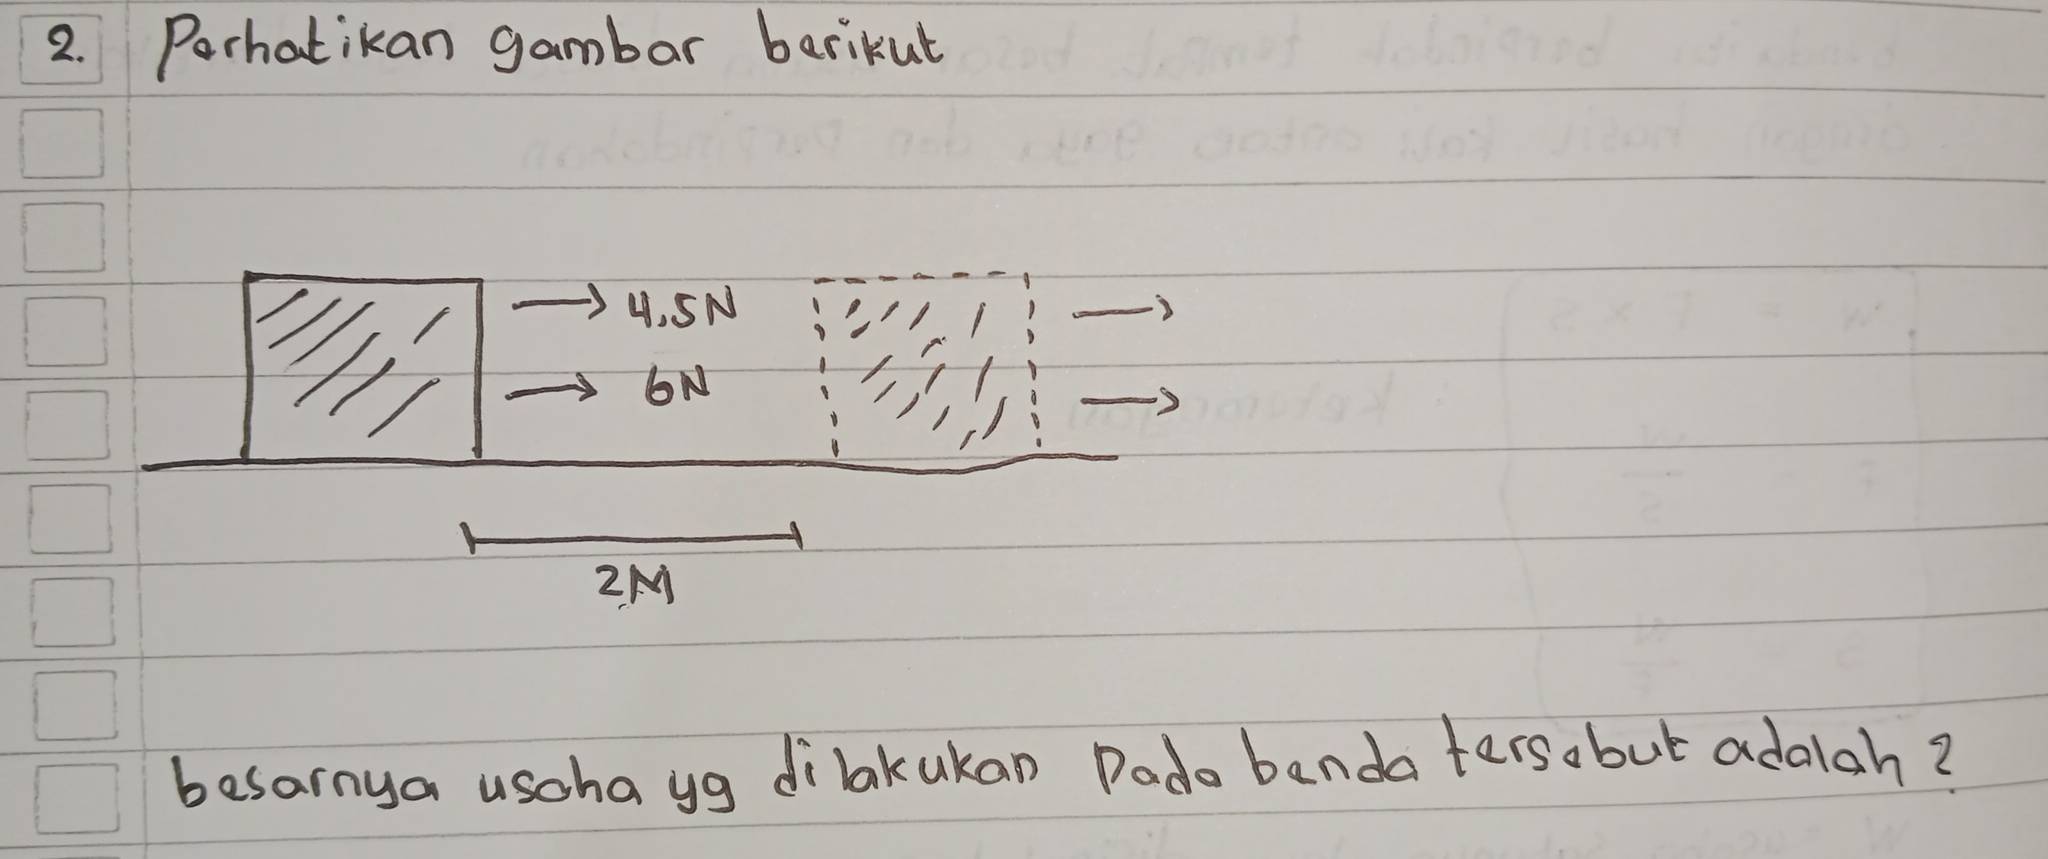 2. Perhatikan gambar berikut
4,5N
6N
2M
besarnya usaha yg dilakukan Pada benda tersebut adalah?